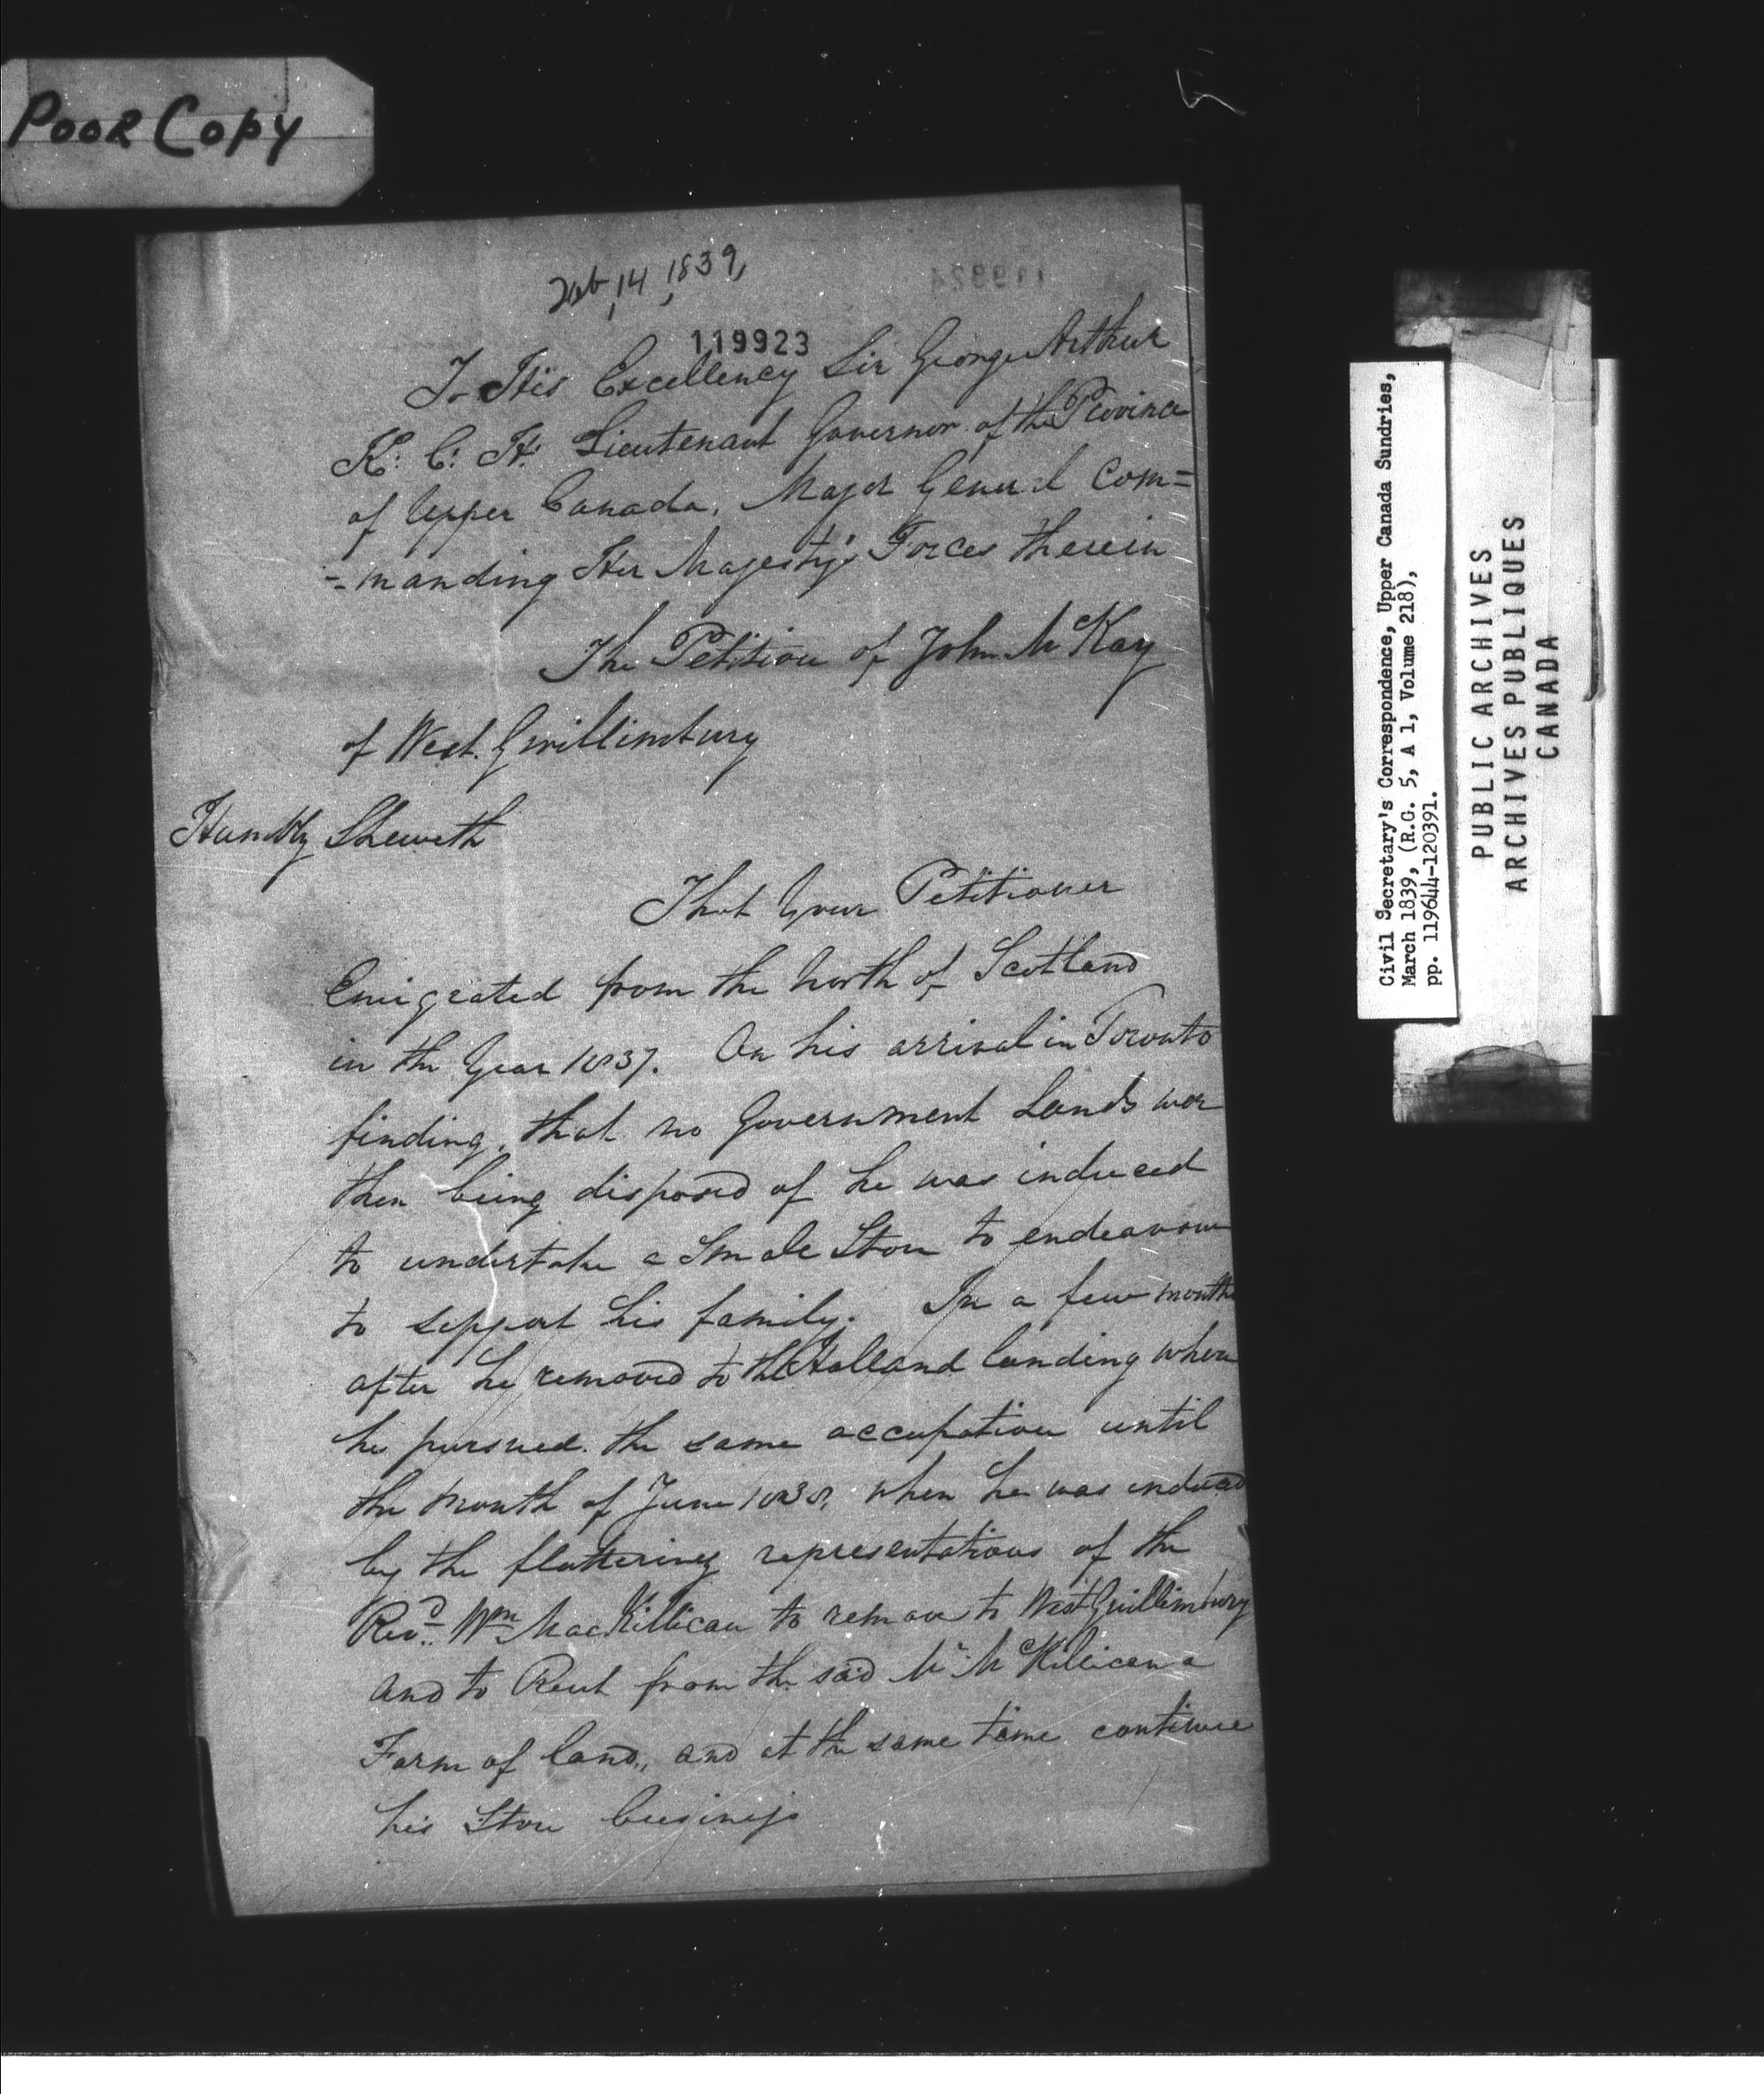 Poor Copy
Feb, 14, 1839,
119924
119923
To His Excellency Sir George Arthur
K: C: H: Lieutenant Governor of the Province
of Upper Canada, Major General Com=
=manding Her Majesty's Forces therein
The Petition of John McKay
of West Gwillimbury
Humbly Sheweth
That Your Petitioner
Emigrated from the North of Scotland
in the Year 1837. On his arrival in Toronto
finding, that no Government Lands wer
then being disposed of he was induced
to undertake a Smale Store to endeavour
to support his family. In a few months
after he removed to the Holland landing where
he pursued the same occupation until
the month of June 1838, when he was induced
by the flattering representations of the
Revd. Wm MacKillican to remove to West Gwillimbury
and to Rent from the said Mr McKillican a
Farm of land, and at the same time continue
his Store business
Civil Secretary's Correspondence, Upper Canada Sundries,
March 1839, (R.G. 5, A 1, Volume 218),
pp. 119644-120391.
PUBLIC ARCHIVES
ARCHIVES PUBLIQUES
CANADA